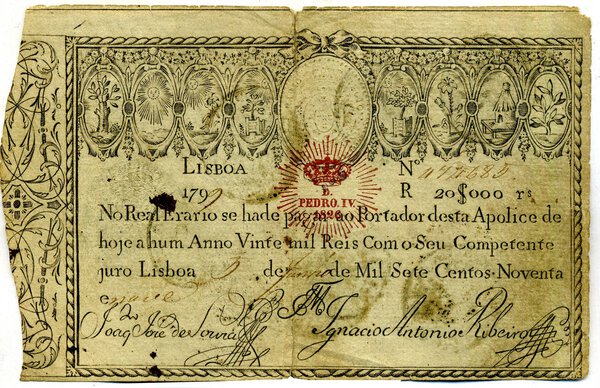 LISBOA
Nº
1799
R 20$000 rs
D.
PEDRO. IV.
1826
No Real Erario se hade pagar ao Portador desta Apolice de
hoje a hum Anno Vinte mil Reis Com o Seu Competente
juro Lisboa de de Mil Sete Centos Noventa
e nove
Joaq. Joze de Souza
Ignacio Antonio Ribeiro